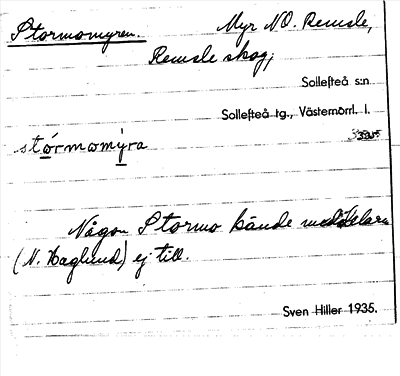 Stormomyren. Myr NO. Remsle,
Remsle skog,
Sollefteå s:n
Sollefteå tg., Västernorrl. l.
stórmomýra
Någon Stormo kände meddelaren
(N. Haglund) ej till.
Sven Hiller 1935.